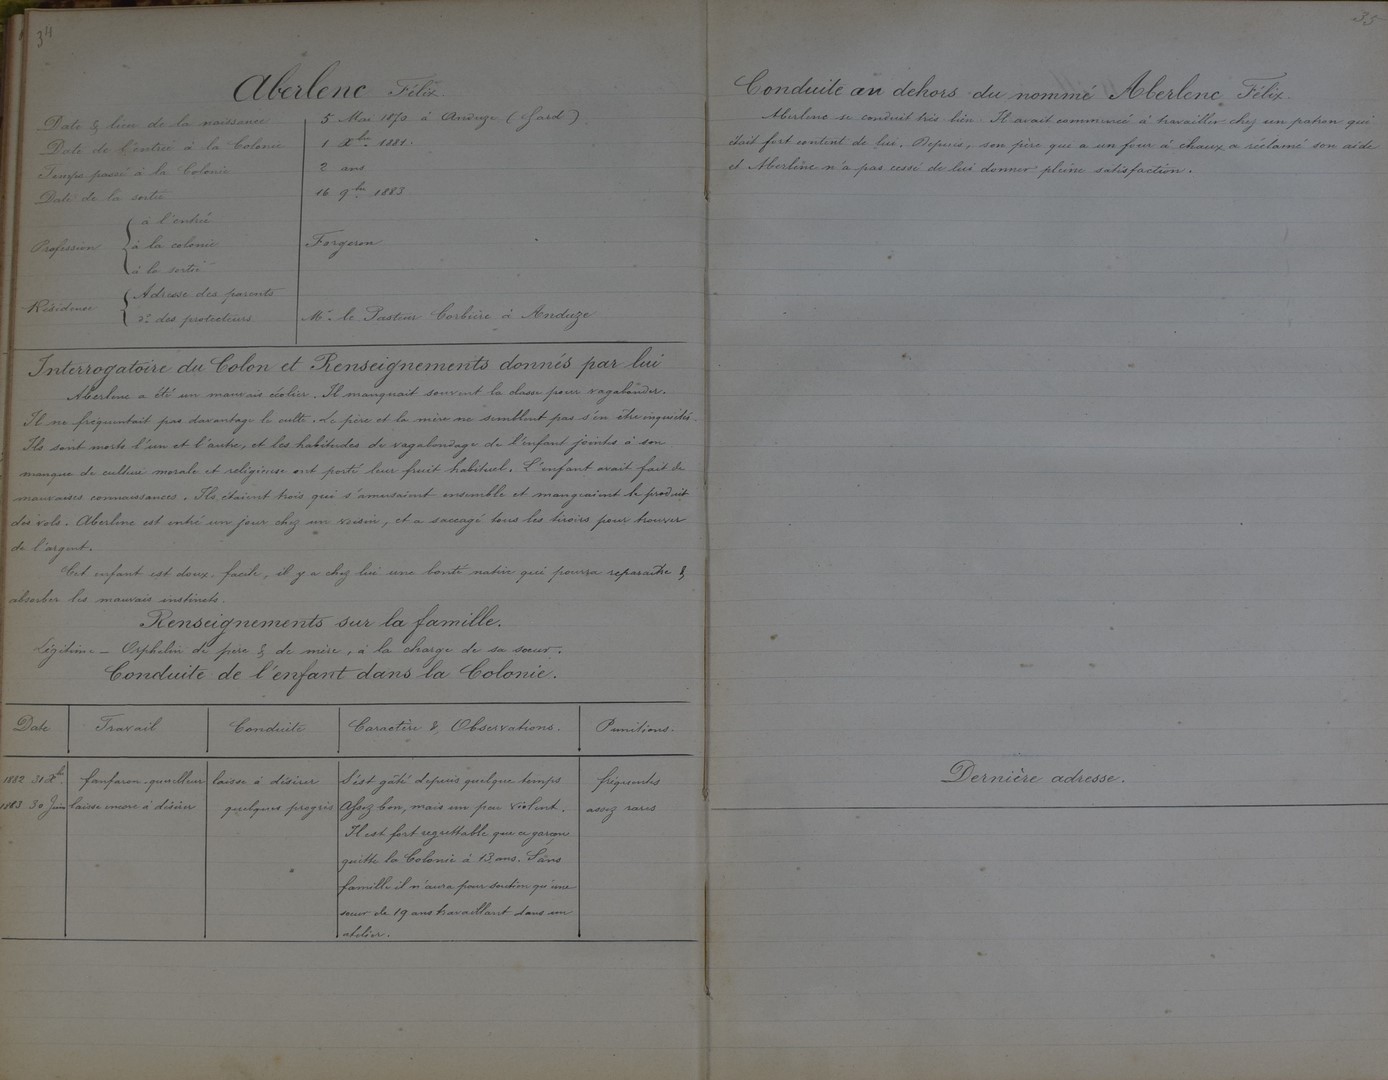 34
Aberlenc Félix.
Date & lieu de la naissance 5 Mai 1870 à Anduze (Gard)
Date de l'entrée à la Colonie 1 Xbre 1881.
Temps passé à la Colonie 2 ans
Date de la sortie 16 9bre 1883
Profession { à l'entrée
à la colonie Forgeron
à la sortie
Résidence { Adresse des parents
do des protecteurs Mr le Pasteur Corbière à Anduze
Interrogatoire du Colon et Renseignements donnés par lui
Aberlenc a été un mauvais écolier. Il manquait souvent la classe pour vagabonder.
Il ne fréquentait pas davantage le culte. Le père et la mère ne semblent pas s'en être inquiétés.
Ils sont morts l'un et l'autre, et les habitudes de vagabondage de l'enfant jointes à son
manque de culture morale et religieuse ont porté leur fruit habituel. L'enfant avait fait de
mauvaises connaissances. Ils étaient trois qui s'amusaient ensemble et mangeaient le produit
des vols. Aberlenc est entré un jour chez un voisin, et a saccagé tous les tiroirs pour trouver
de l'argent.
Cet enfant est doux, facile, il y a chez lui une bonté native qui pourra reparaître &
absorber les mauvais instincts.
Renseignements sur la famille.
Légitime — Orphelin de père & de mère, à la charge de sa sœur.
Conduite de l'enfant dans la Colonie.
Date Travail Conduite Caractère & Observations. Punitions.
1882 31 Xbre fanfaron-querelleur laisse à désirer S'est gâté depuis quelque temps fréquentes
1883 30 Juin laisse encore à désirer quelques progrès Assez bon, mais un peu violent. assez rares
Il est fort regrettable que ce garçon
quitte la Colonie à 13 ans. Sans
famille il n'aura pour soutien qu'une
sœur de 19 ans travaillant dans un
atelier.
35
Conduite au dehors du nommé Aberlenc Félix.
Aberlenc se conduit très bien. Il avait commencé à travailler chez un patron qui
était fort content de lui. Depuis, son père qui a un four à chaux a réclamé son aide
et Aberlenc n'a pas cessé de lui donner pleine satisfaction.
Dernière adresse.